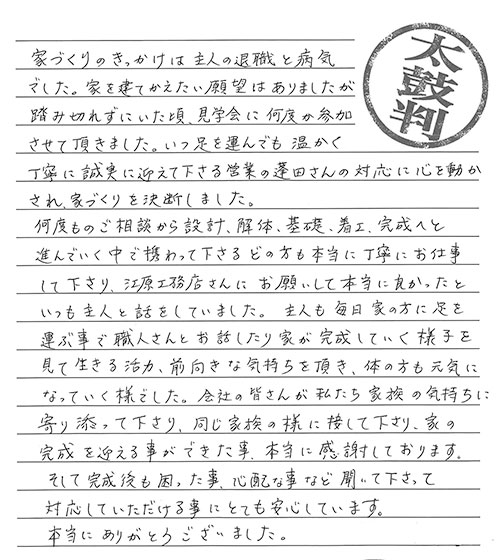 太鼓判
家づくりのきっかけは主人の退職と病気
でした。家を建てかえたい願望はありましたが
踏み切れずにいた頃、見学会に何度か参加
させて頂きました。いつ足を運んでも温かく
丁寧に誠実に迎えて下さる営業の蓬田さんの対応に心を動か
され、家づくりを決断しました。
何度ものご相談から設計、解体、基礎、着工、完成へと
進んでいく中で携わって下さるどの方も本当に丁寧にお仕事
して下さり、江原工務店さんにお願いして本当に良かったと
いつも主人と話をしていました。主人も毎日家の方に足を
運ぶ事で職人さんとお話したり家が完成していく様子を
見て生きる活力、前向きな気持ちを頂き、体の方も元気に
なっていく様でした。会社の皆さんが私たち家族の気持ちに
寄り添って下さり、同じ家族の様に接して下さり、家の
完成を迎える事ができた事、本当に感謝しております。
そして完成後も困った事、心配な事など聞いて下さって
対応していただける事にとても安心しています。
本当にありがとうございました。